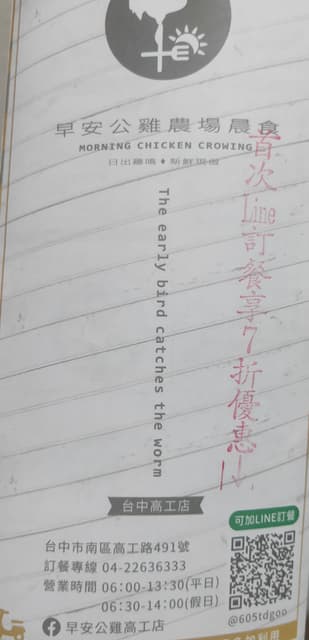 早安公雞農場晨食
MORNING CHICKEN CROWING
日出雞鳴♦新鮮現做
首次Line訂餐享7折優惠!!
The early bird catches the worm
台中高工店
可加LINE訂餐
台中市南區高工路491號
訂餐專線 04-22636333
營業時間 06:00-13:30(平日)
06:30-14:00(假日)
@605tdgoo
早安公雞高工店